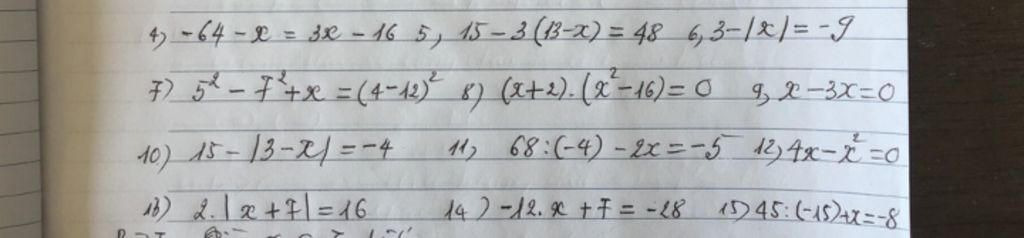 4) -64 - x = 3x - 16 5, 15 - 3(13-x) = 48 6, 3-|x| = -9
7) 5² - 7² + x = (4-12)² 8) (x+2).(x²-16) = 0 9, x - 3x = 0
10) 15 - |3-x| = -4 11, 68:(-4) - 2x = -5 12, 4x - x² = 0
13) 2.|x+7| = 16 14) -12.x + 7 = -28 15) 45:(-15)+x = -8